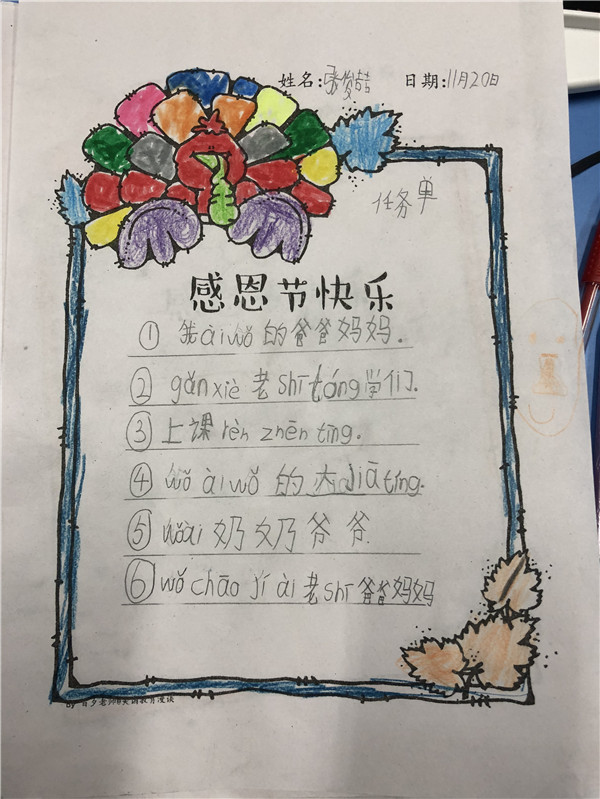 姓名:张俊喆 日期:11月20日
任务单
感恩节快乐
① 我ài wǒ 的爸爸妈妈.
② gǎn xiè 老 shī tóng 学们.
③ 上课 rèn zhēn tīng.
④ wǒ ài wǒ 的大 jiā tíng.
⑤ wǒ ài 奶奶爷爷.
⑥ wǒ chāo jí ài 老 shī 爸爸妈妈